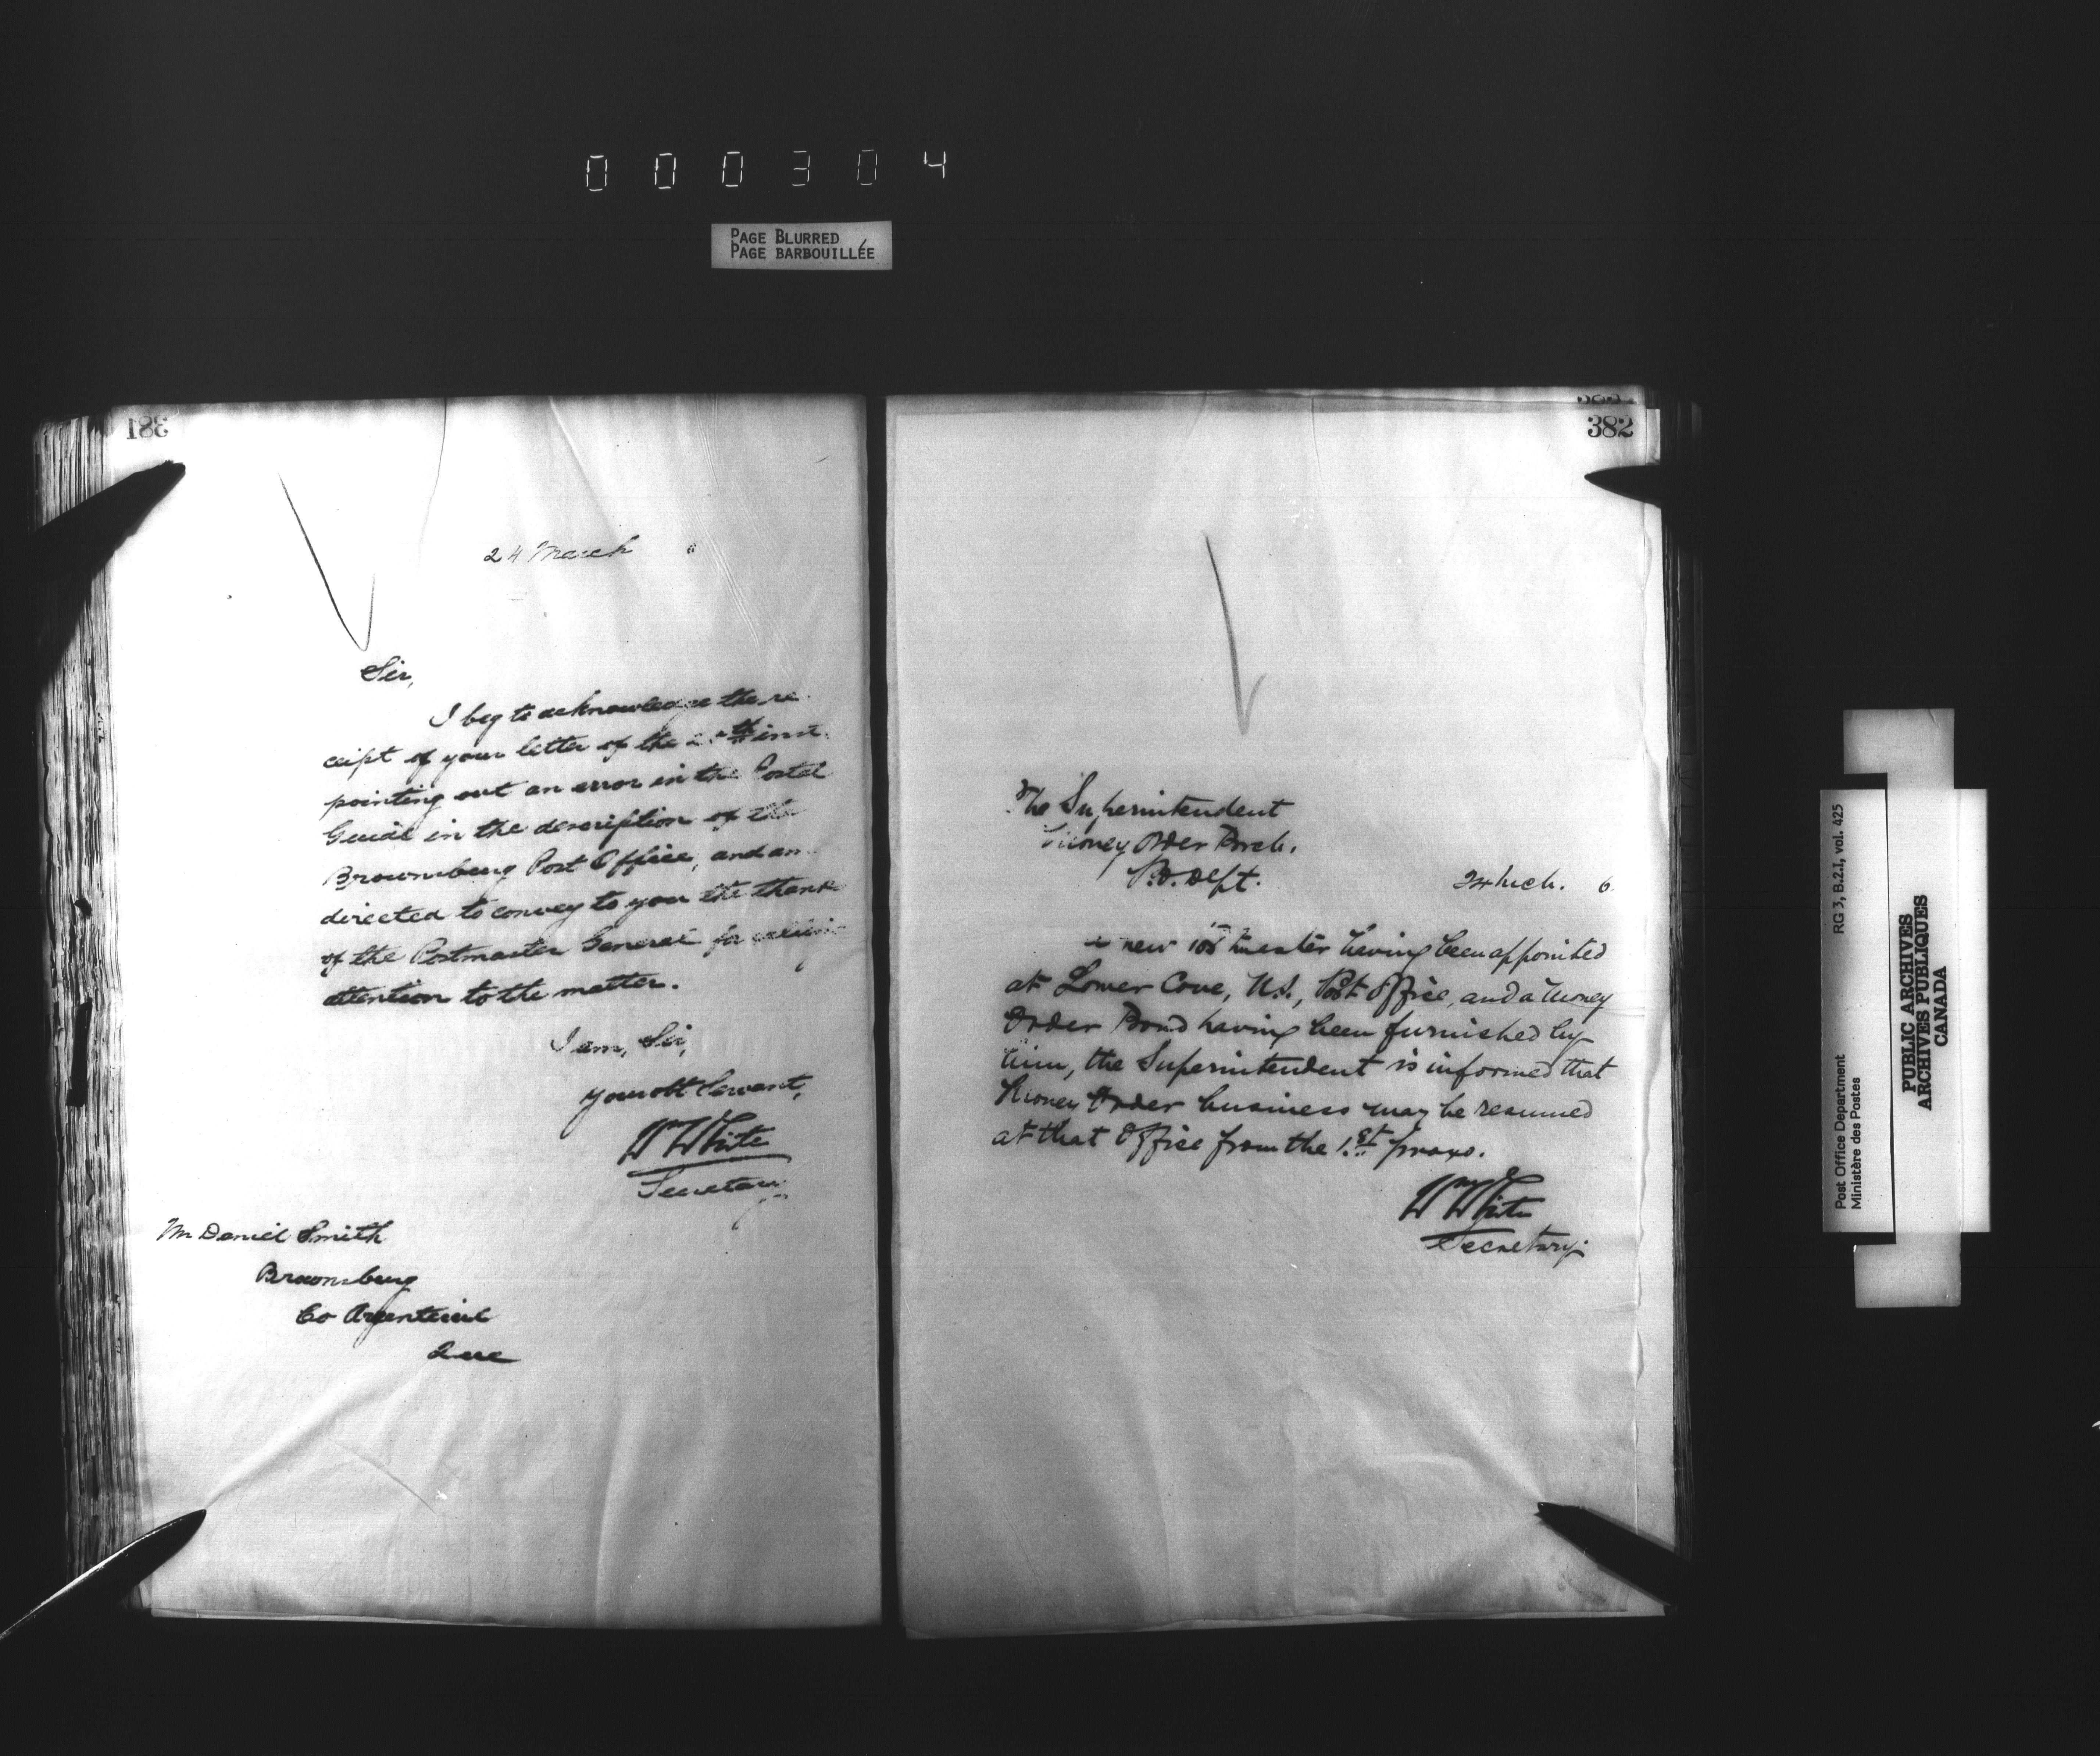 000304
PAGE BLURRED
PAGE BARBOUILLÉE
381
24 March 6
Sir,
I beg to acknowledge the re
ceipt of your letter of the inst.
pointing out an error in the Postal
Guide in the description of the
Brownsburg Post Office, and am
directed to convey to you the thanks
of the Postmaster General for calling
attention to the matter.
I am, Sir,
Your obt Servant,
Wm White
Secretary
Mr Daniel Smith
Brownsburg
Co Argenteuil
Que
382
The Superintendent
Money Order Brch.
P.O. Dept.
24 Mch. 6
A new Postmaster having been appointed
at Lower Cove, N.S., Post Office, and a Money
Order Bond having been furnished by
him, the Superintendent is informed that
Money Order business may be resumed
at that Office from the 1st proxo.
Wm White
Secretary.
RG 3, B.2.I, vol. 425
Post Office Department
Ministère des Postes
PUBLIC ARCHIVES
ARCHIVES PUBLIQUES
CANADA